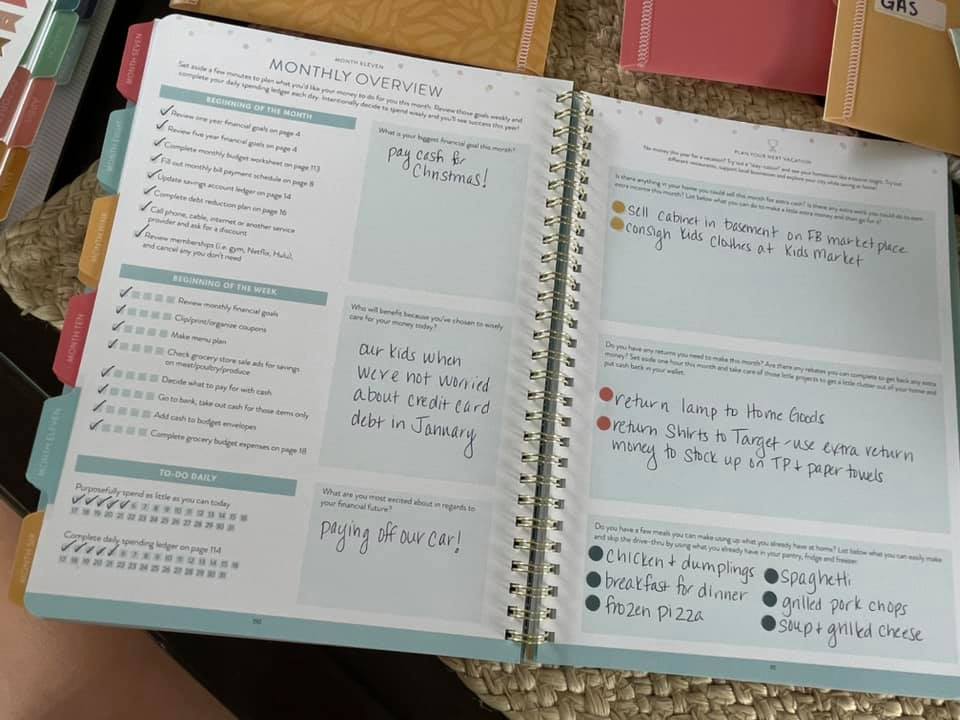 GAS
MONTH SEVEN
MONTH EIGHT
MONTH NINE
MONTH TEN
MONTH ELEVEN
MONTH ELEVEN
MONTHLY OVERVIEW
Set aside a few minutes to plan what you'd like your money to do for you this month. Review those goals weekly and
complete your daily spending ledger each day. Intentionally decide to spend wisely and you'll see success this year!
BEGINNING OF THE MONTH
Review one year financial goals on page 4
Review five year financial goals on page 4
Complete monthly budget worksheet on page 113
Fill out monthly bill payment schedule on page 8
Update savings account ledger on page 14
Complete debt reduction plan on page 16
Call phone, cable, internet or another service
provider and ask for a discount
Review memberships (i.e. gym, Netflix, Hulu),
and cancel any you don't need
BEGINNING OF THE WEEK
Review monthly financial goals
Clip/print/organize coupons
Make menu plan
Check grocery store sale ads for savings
on meat/poultry/produce
Decide what to pay for with cash
Go to bank, take out cash for those items only
Add cash to budget envelopes
Complete grocery budget expenses on page 18
TO-DO DAILY
Purposefully spend as little as you can today
6 7 8 9 10 11 12 13 14 15 16
17 18 19 20 21 22 23 24 25 26 27 28 29 30 31
Complete daily spending ledger on page 114
6 7 8 9 10 11 12 13 14 15 16
17 18 19 20 21 22 23 24 25 26 27 28 29 30 31
What is your biggest financial goal this month?
pay cash for
Christmas!
Who will benefit because you've chosen to wisely
care for your money today?
our kids when
we're not worried
about credit card
debt in January
What are you most excited about in regards to
your financial future?
paying off our car!
PLAN YOUR NEXT VACATION
No money this year for a vacation? Try out a "stay-cation" and see your hometown like a tourist might. Try out
different restaurants, support local businesses and explore your city while saving at home!
Is there anything in your home you could sell this month for extra cash? Is there any extra work you could do to earn
extra income this month? List below what you can do to make a little extra money and then go for it!
sell cabinet in basement on FB marketplace
consign kids clothes at Kids Market
Do you have any returns you need to make this month? Are there any rebates you can complete to get back any extra
money? Set aside one hour this month and take care of those little projects to get a little clutter out of your home and
put cash back in your wallet.
return lamp to Home Goods
return shirts to Target - use extra return
money to stock up on TP + paper towels
Do you have a few meals you can make using up what you already have at home? List below what you can easily make
and skip the drive-thru by using what you already have in your pantry, fridge and freezer.
chicken + dumplings
breakfast for dinner
frozen pizza
spaghetti
grilled pork chops
soup + grilled cheese